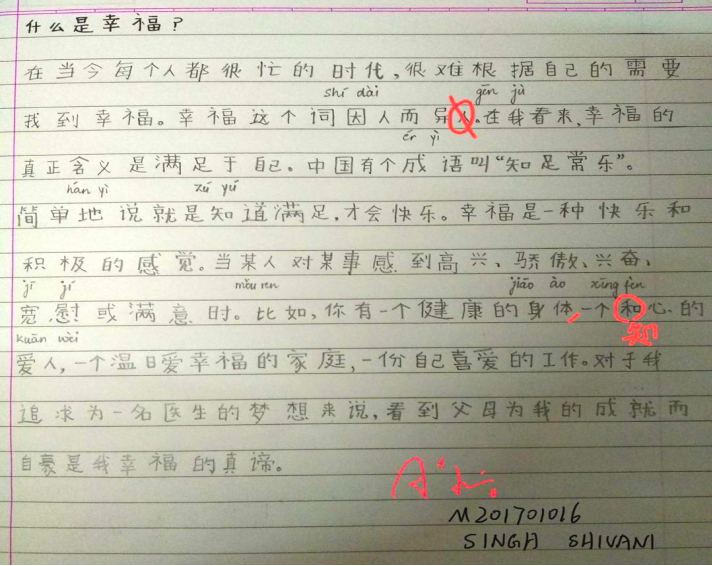 什么是幸福？
在当今每个人都很忙的时代,很难根据自己的需要
shí dài gēn jù
找到幸福。幸福这个词因人而异人。在我看来,幸福的
ér yì
真正含义是满足于自己。中国有个成语叫“知足常乐”。
hán yì zú yú
简单地说就是知道满足,才会快乐。幸福是一种快乐和
积极的感觉。当某人对某事感到高兴、骄傲、兴奋、
jī jí mǒu ren jiāo ào xīng fèn
宽慰或满意时。比如,你有一个健康的身体,一个和心的
kuān wèi 知
爱人,一个温日爱幸福的家庭,一份自己喜爱的工作。对于我
追求为一名医生的梦想来说,看到父母为我的成就而
自豪是我幸福的真谛。
A+
M201701016
SINGH SHIVANI